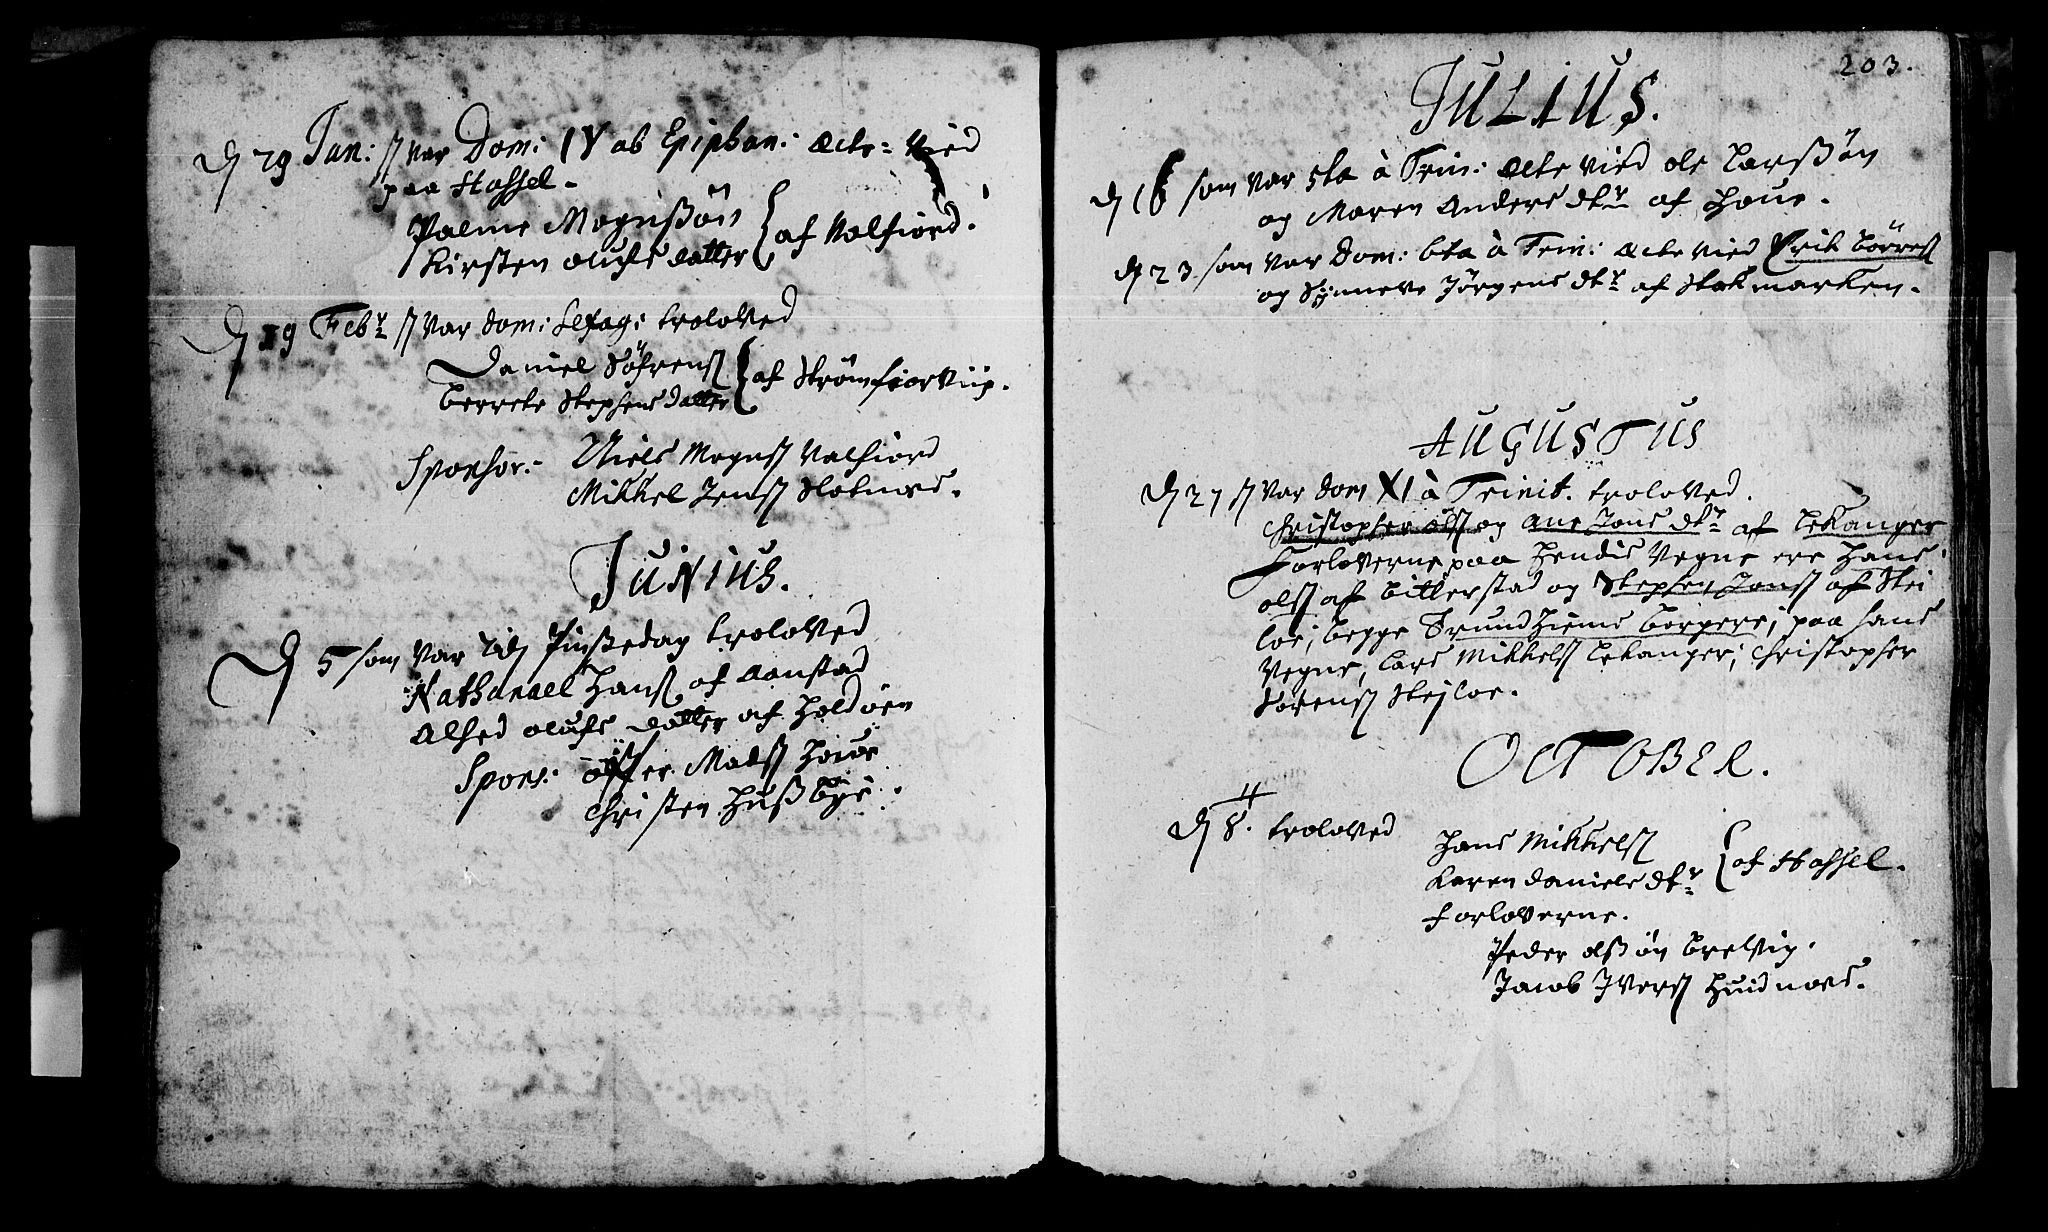 D 29 Jan: s var Dom: IV ab Epiphan: Ecte-vied
paa Hassel.
Palme Mognßön
Kirsten olufs datter } af Valfiord.
D 19 Febr: s var dom: Sexag: trolovet
Daniel Söfrens
berrete Stephens datter } af Strömfior Viig.
Sponsor:- Niels Mogns Valfiord
Mikkel Jens Slotnæs.
JUNIUS.
D 5 som var 2den Pinßedag troloved
Nathanael Hans af Aanstad
Alhed olufs datter af Holdöen
Spons: Mads
Christen Hußbye.
203.
JULIUS.
D 16 som var 5ta à Trin: Ecte vied ole Larßön
og Maren Anders dtr af Houe.
D 23 som var Dom: 6ta à Trin: Ecte vied Erik börres
og Synneve Jörgens dtr af Stokmarken.
AUGUSTUS
D 27 s var dom XI à Trinit. troloved.
Christopher ols og Ane Jons dtr af Lekanger
Forloverne paa Hendis Vegne ere Hans
ols af bitterstad og Stephen Jons af Stei
loe; begge Trundhiems borgere; paa hans
Vegne, Lars Mikkels Lekanger; Christopher
Sörens Stejloe.
OCTOBER.
D 8. troloved Hans Mikkels
Karen daniels dtr } af Hassel.
Forloverne.
Peder olßön brelvig.
Jacob Ivers Huidnæs.